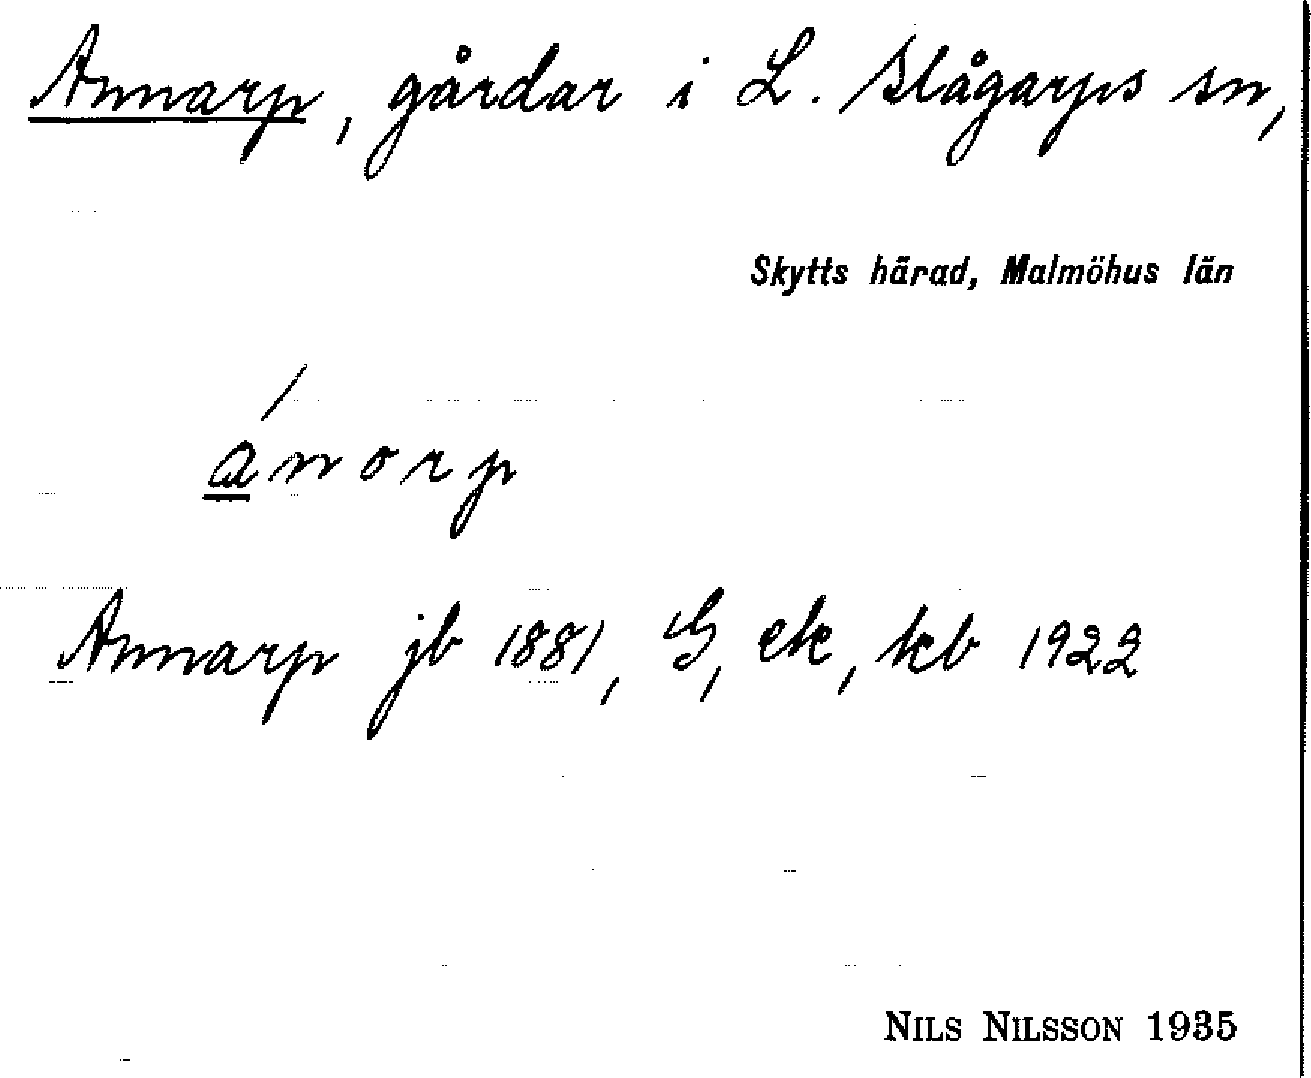 Annarp, gårdar i L. Slågarps sn,
Skytts härad, Malmöhus län
ánorp
Annarp jb 1881, G, ek, kb 1922
NILS NILSSON 1935